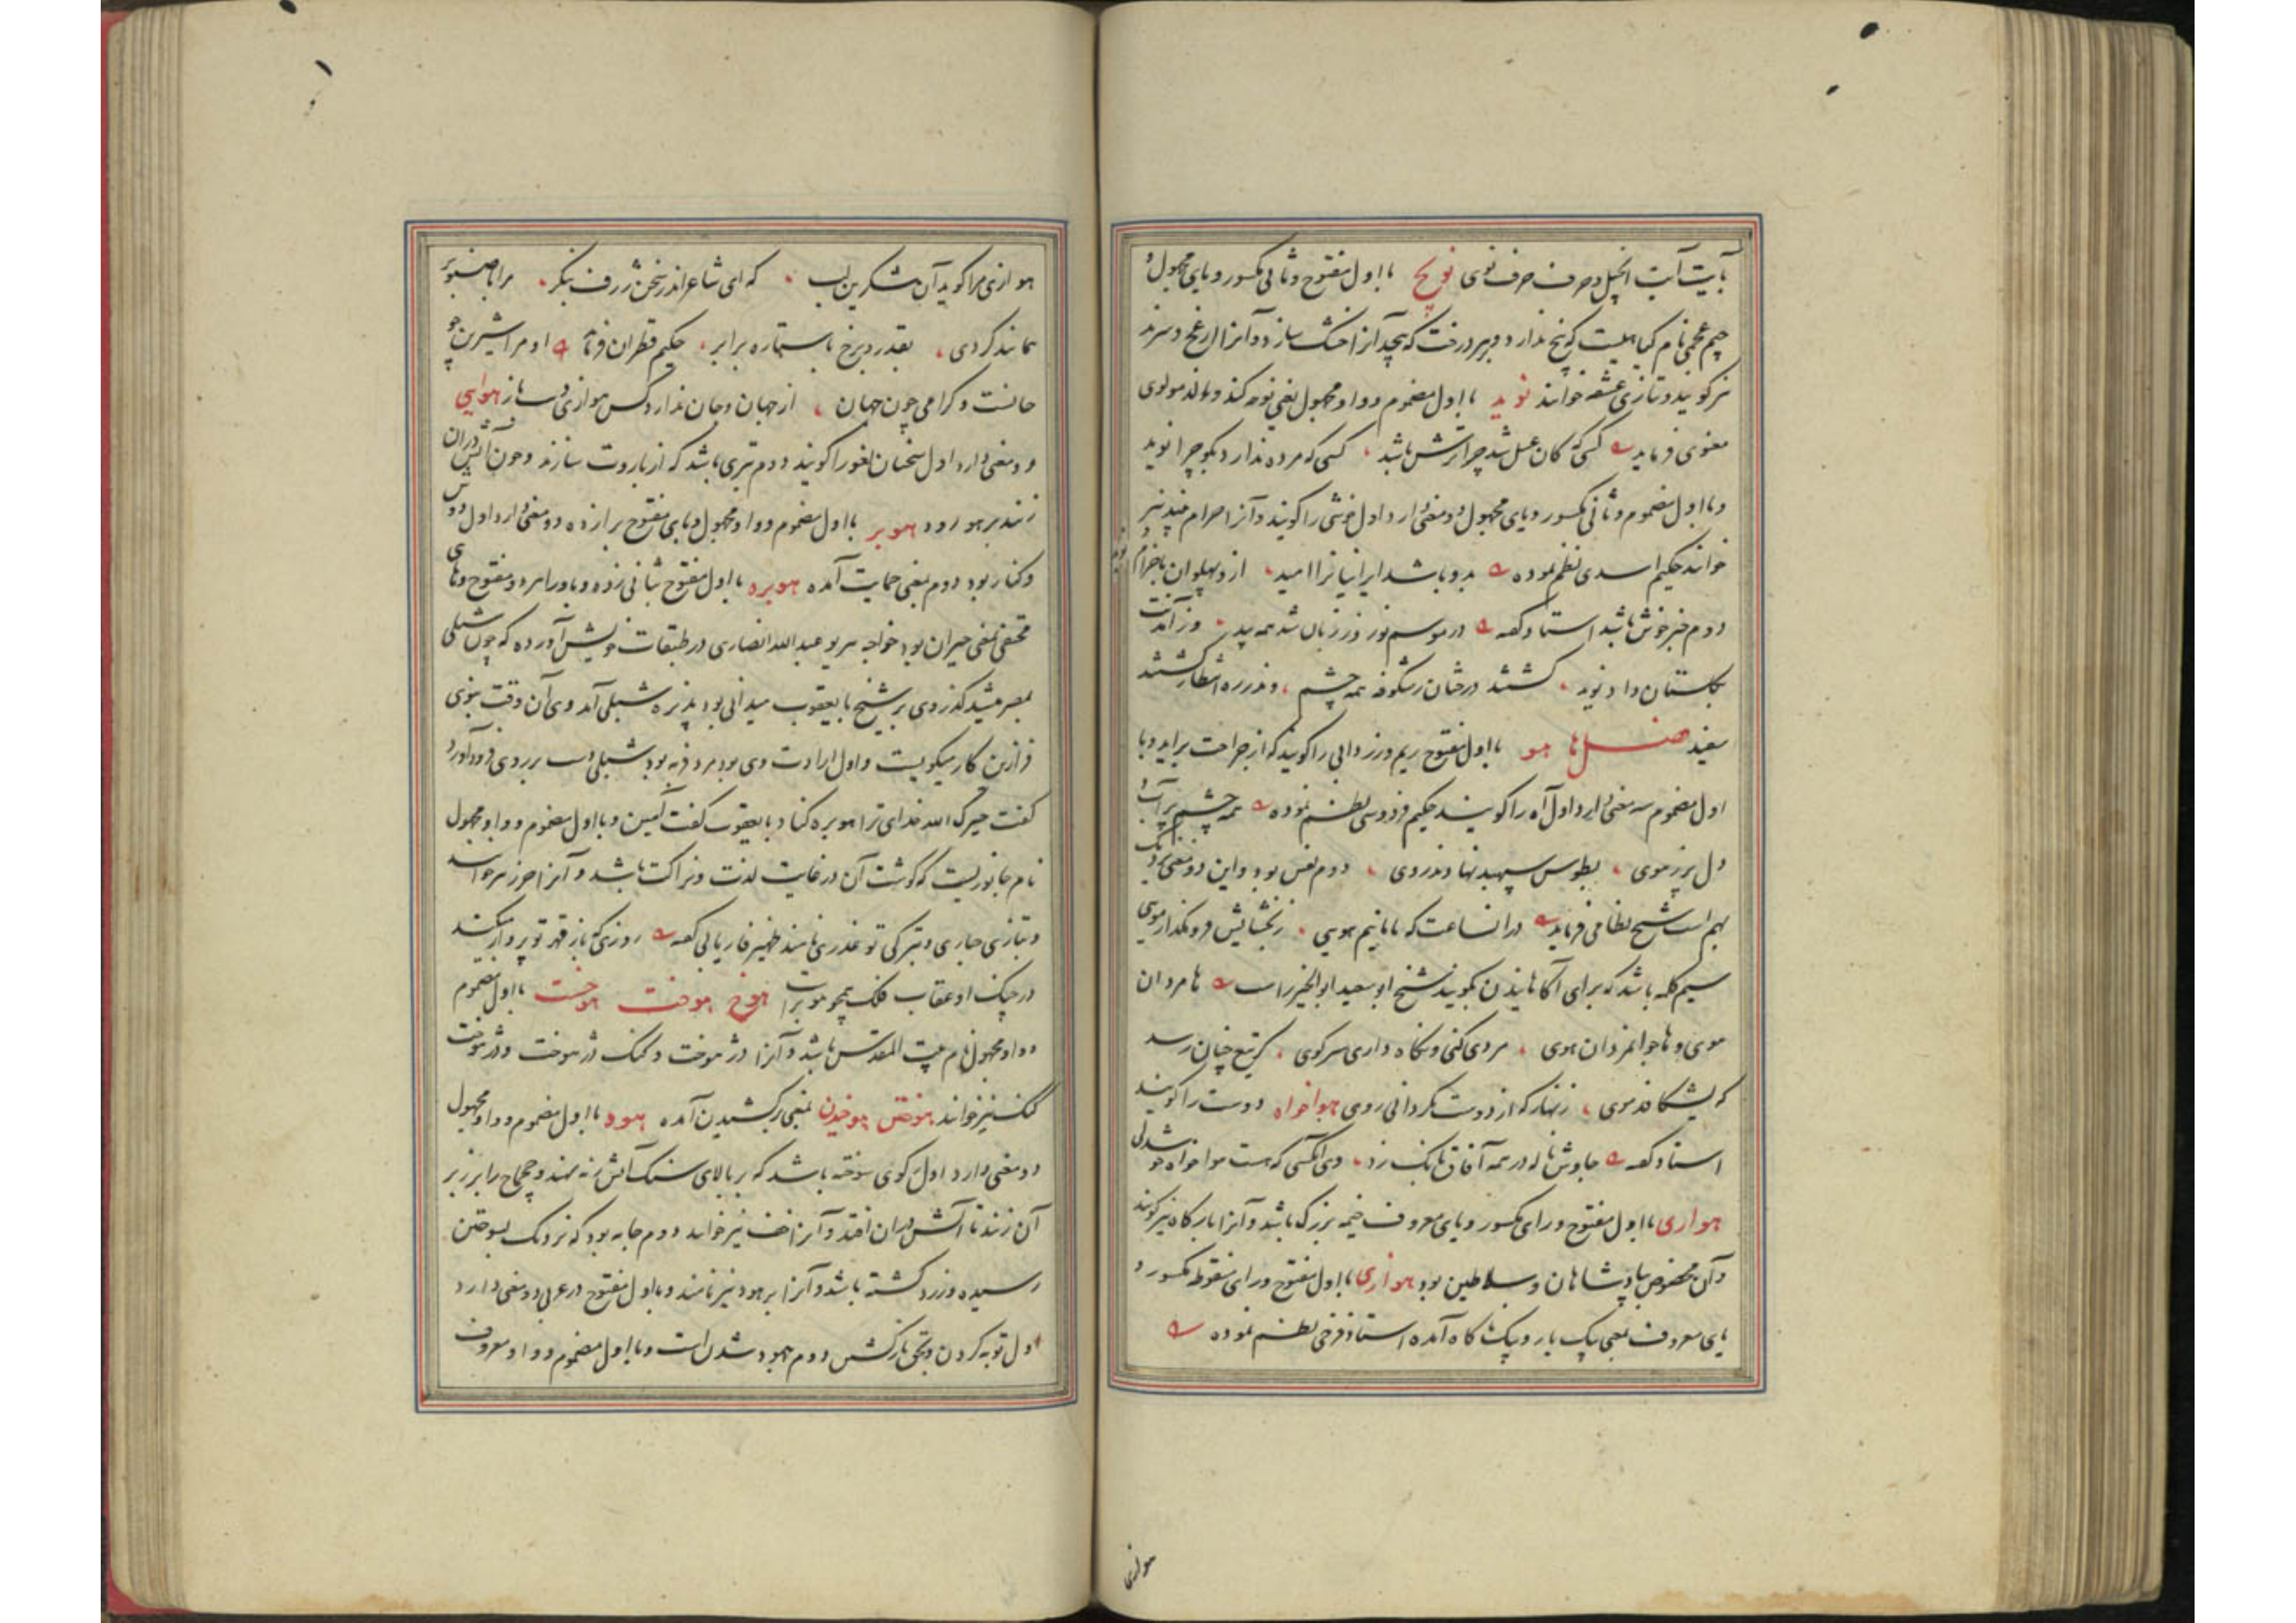 بآیت آیت انجیل و حرف حرف نوی نویج با اول مفتوح و ثانی مکسور و یای مجهول و
جیم عجمی نام گیاهیست که بیخ ندارد و بهر درخت که پیچد آنرا خشک سازد و آنرا
نیز گویند و بتازی عشقه خوانند نوید با اول مضموم و واو مجهول یعنی نوحه کند و نالد مولوی
معنوی فرماید کسی که کان عسل شد چرا ترش باشد کسی که مرده ندارد بگو چرا نوید
و با اول مضموم و ثانی مکسور و یای مجهول دو معنی دارد اول خوشی را گویند و آنرا خرام نیز
خوانند حکیم اسدی نظم نموده بدو باشد ایرانیانرا امید ازو پهلوان با خرام
دوم خبر خوش باشد استاد گفته در موسم نوروز زبان شد همه بید وز آمدنت
بگلستان داد نوید گشتند درختان ز شکوفه همه چشم وندر ره انتظار گشتند
سفید فصل ها هو با اول مفتوح ریم و زردابی را گویند که از جراحت برآید و با
اول مضموم سه معنی دارد اول آه را گویند حکیم فردوسی نظم نموده همه چشم پر آب و
دل پر ز موی بطوس سپهبد نهادند روی دوم نفس بود و این دو معنی نزدیک
بهم است شیخ نظامی فرماید در انساعت که ما مانیم و هویی ز بخشایش فرو مگذار مویی
سیم کلمه باشد که برای آگاهانیدن بگویند شیخ ابو سعید ابو الخیر راست نامردان
موی و با جوانمردان هوی مردی کنی و نگاه داری سر کوی گر تیغ چنان رسد
که بشکافد موی زنهار که از دوست نگردانی روی هواخواه دوست را گویند
استاد گفته چاوش ناله در همه آفاق بانگ زد وی آنکسی که هست هواخواه
هواری با اول مفتوح و رای مکسور و یای معروف خیمه بزرگ باشد و آنرا بارگاه نیز گویند
و آن مخصوص بپادشاهان و سلاطین بود هوازی با اول مفتوح و زای منقوط مکسور و
یای معروف بمعنی یک بار و یک ناگاه آمده استاد فرخی نظم نموده
هوازی
هوازی مرا گوید آن شکرین لب که ای شاعر اندر سخن ژرف بنگر مرا با صنوبر
همانند کردی بقد و برخ با ستاره برابر حکیم قطران فرماید او مرا شیرین چو
جانست و گرامی چون جهان از جهان و جان ندارد کس هوازی دست باز هوایی
دو معنی دارد اول سخنان لغو را گویند دوم تیری باشد که از باروت سازند و چون آتش دران
زنند بر هوا رود هوبر با اول مضموم و واو مجهول و بای مفتوح برا زده دو معنی دارد اول دوش
و کنار بود دوم بمعنی حمایت آمده هوبره با اول مفتوح بثانی زده و با و را هر دو مفتوح و های
مختفی بمعنی حیران بود خواجه عبد الله انصاری در طبقات خویش آورده که چون شبلی
بمصر میشد گذر وی بر شیخ با یعقوب میدانی بود پذیره شبلی آمد وی آن وقت بنوی
فرا این کار میگویست و اول ارادت وی بود مرد فربه بود شبلی دست بر روی فرود آورد
گفت خیرک الله خدای ترا هوبره کناد با یعقوب گفت آمین و با اول مضموم و واو مجهول
نام جانوریست که گوشت آن در غایت لذت و نزاکت باشد و آنرا
و بتازی حباری و بترکی توغدری نامند ظهیر فاریابی گفته روزی که باز قهر تو پرواز میکند
در چنگ او عقاب فلک همچو هوبر است هوخ هوخت هوخست با اول مضموم
و واو مجهول نام بیت المقدس باشد و آنرا دژ هوخت و کنک دژ هوخت و دژ هوخت
کنک نیز خوانند هوختن هوخیدن بمعنی برکشیدن آمده هود با اول مضموم و واو مجهول
دو معنی دارد اول رکوی سوخته باشد که بر بالای سنگ آتش زنه نهند و چخماخ را بر زبر
آن زنند تا آتش دران افتد و آنرا خف نیز خوانند دوم جامه بود که نزدیک بسوختن
رسیده و زرد گشته باشد و آنرا برهود نیز نامند و با اول مفتوح در عربی دو معنی دارد
اول توبه کردن و بحق بازگشتن دوم جهود شدن است و با اول مضموم و واو معروف